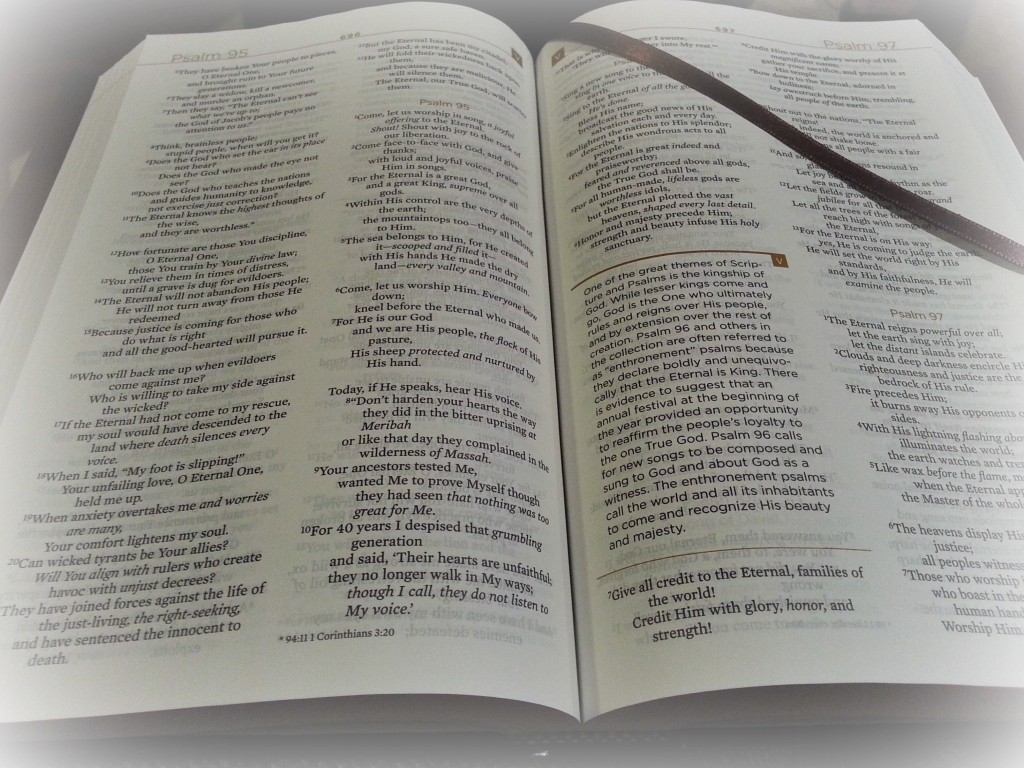 Psalm 95
696
⁵They have broken Your people to pieces,
O Eternal One,
and brought ruin to Your future
generations.
⁶They slay a widow, kill a newcomer,
and murder an orphan.
⁷Then they say, "The Eternal can't see
what we're up to;
the God of Jacob's people pays no
attention to us."
⁸Think, brainless people;
stupid people, when will you get it?
⁹Does the God who set the ear in its place
not hear?
Does the God who made the eye not
see?
¹⁰Does the God who teaches the nations
and guides humanity to knowledge,
not exercise just correction?
¹¹The Eternal knows the highest thoughts of
the wise;
and they are worthless.*
¹²How fortunate are those You discipline,
O Eternal One,
those You train by Your divine law;
¹³You relieve them in times of distress,
until a grave is dug for evildoers.
¹⁴The Eternal will not abandon His people;
He will not turn away from those He
redeemed
¹⁵Because justice is coming for those who
do what is right
and all the good-hearted will pursue it.
¹⁶Who will back me up when evildoers
come against me?
Who is willing to take my side against
the wicked?
¹⁷If the Eternal had not come to my rescue,
my soul would have descended to the
land where death silences every
voice.
¹⁸When I said, "My foot is slipping!"
Your unfailing love, O Eternal One,
held me up.
¹⁹When anxiety overtakes me and worries
are many,
Your comfort lightens my soul.
²⁰Can wicked tyrants be Your allies?
Will You align with rulers who create
havoc with unjust decrees?
They have joined forces against the life of
the just-living, the right-seeking,
and have sentenced the innocent to
death.
²²But the Eternal has been my citadel;
my God, a sure safe haven.
²³He will fold their wickedness back upon
them,
and because they are malicious, He
will silence them.
The Eternal, our True God, will silence
them.
Psalm 95
¹Come, let us worship in song, a joyful
offering to the Eternal.
Shout! Shout with joy to the rock of
our liberation.
²Come face-to-face with God, and give
thanks;
with loud and joyous voices, praise
Him in songs.
³For the Eternal is a great God,
and a great King, supreme over all
gods.
⁴Within His control are the very depths of
the earth;
the mountaintops too—they all belong
to Him.
⁵The sea belongs to Him, for He created
it—scooped and filled it—
with His hands He made the dry
land—every valley and mountain.
⁶Come, let us worship Him. Everyone bow
down;
kneel before the Eternal who made us.
⁷For He is our God
and we are His people, the flock of His
pasture,
His sheep protected and nurtured by
His hand.
Today, if He speaks, hear His voice.
⁸"Don't harden your hearts the way
they did in the bitter uprising at
Meribah
or like that day they complained in the
wilderness of Massah.
⁹Your ancestors tested Me,
wanted Me to prove Myself though
they had seen that nothing was too
great for Me.
¹⁰For 40 years I despised that grumbling
generation
and said, 'Their hearts are unfaithful;
they no longer walk in My ways;
though I call, they do not listen to
My voice.'
* 94:11 1 Corinthians 3:20
697
Psalm 97
er I swore,
er into My rest."
Sing a new song to the
ing in one voice to the
earth.
ng to the Eternal of all the good
He's done.
bless His name;
broadcast the good news of His
salvation each and every day.
³Enlighten the nations to His splendor;
describe His wondrous acts to all
people.
⁴For the Eternal is great indeed and
praiseworthy;
feared and reverenced above all gods,
the True God shall be.
⁵For all human-made, lifeless gods are
worthless idols,
but the Eternal plotted the vast
heavens, shaped every last detail.
⁶Honor and majesty precede Him;
strength and beauty infuse His holy
sanctuary.
One of the great themes of Scrip-
ture and Psalms is the kingship of
God. While lesser kings come and
go, God is the One who ultimately
rules and reigns over His people,
and by extension over the rest of
creation. Psalm 96 and others in
the collection are often referred to
as "enthronement" psalms because
they declare boldly and unequivo-
cally that the Eternal is King. There
is evidence to suggest that an
annual festival at the beginning of
the year provided an opportunity
to reaffirm the people's loyalty to
the one True God. Psalm 96 calls
for new songs to be composed and
sung to God and about God as a
witness. The enthronement psalms
call the world and all its inhabitants
to come and recognize His beauty
and majesty.
V
⁷Give all credit to the Eternal, families of
the world!
Credit Him with glory, honor, and
strength!
⁸Credit Him with the glory worthy of His
magnificent name;
Gather your sacrifice, and present it at
His temple.
⁹Bow down to the Eternal, adorned in
holiness;
lay awestruck before Him, trembling,
all people of the earth.
Shout out to the nations, "The Eternal
reigns!
Indeed, the world is anchored and
not shake loose.
all people with a fair
resound in
Let joy
sea and
¹²Let the fields grow
jubilee for all
Let all the trees of the
reach high with songs of
the Eternal,
¹³For the Eternal is on His way:
yes, He is coming to judge the earth.
He will set the world right by His
standards,
and by His faithfulness, He will
examine the people.
Psalm 97
¹The Eternal reigns powerful over all;
let the earth sing with joy;
let the distant islands celebrate.
²Clouds and deep darkness encircle Him;
righteousness and justice are the
bedrock of His rule.
³Fire precedes Him;
it burns away His opponents on
sides.
⁴With His lightning flashing about
illuminates the world;
the earth watches and trem
⁵Like wax before the flame, m
when the Eternal app
the Master of the whol
⁶The heavens display His
justice;
all peoples witness
⁷Those who worship
who boast in the
human hand
Worship Him